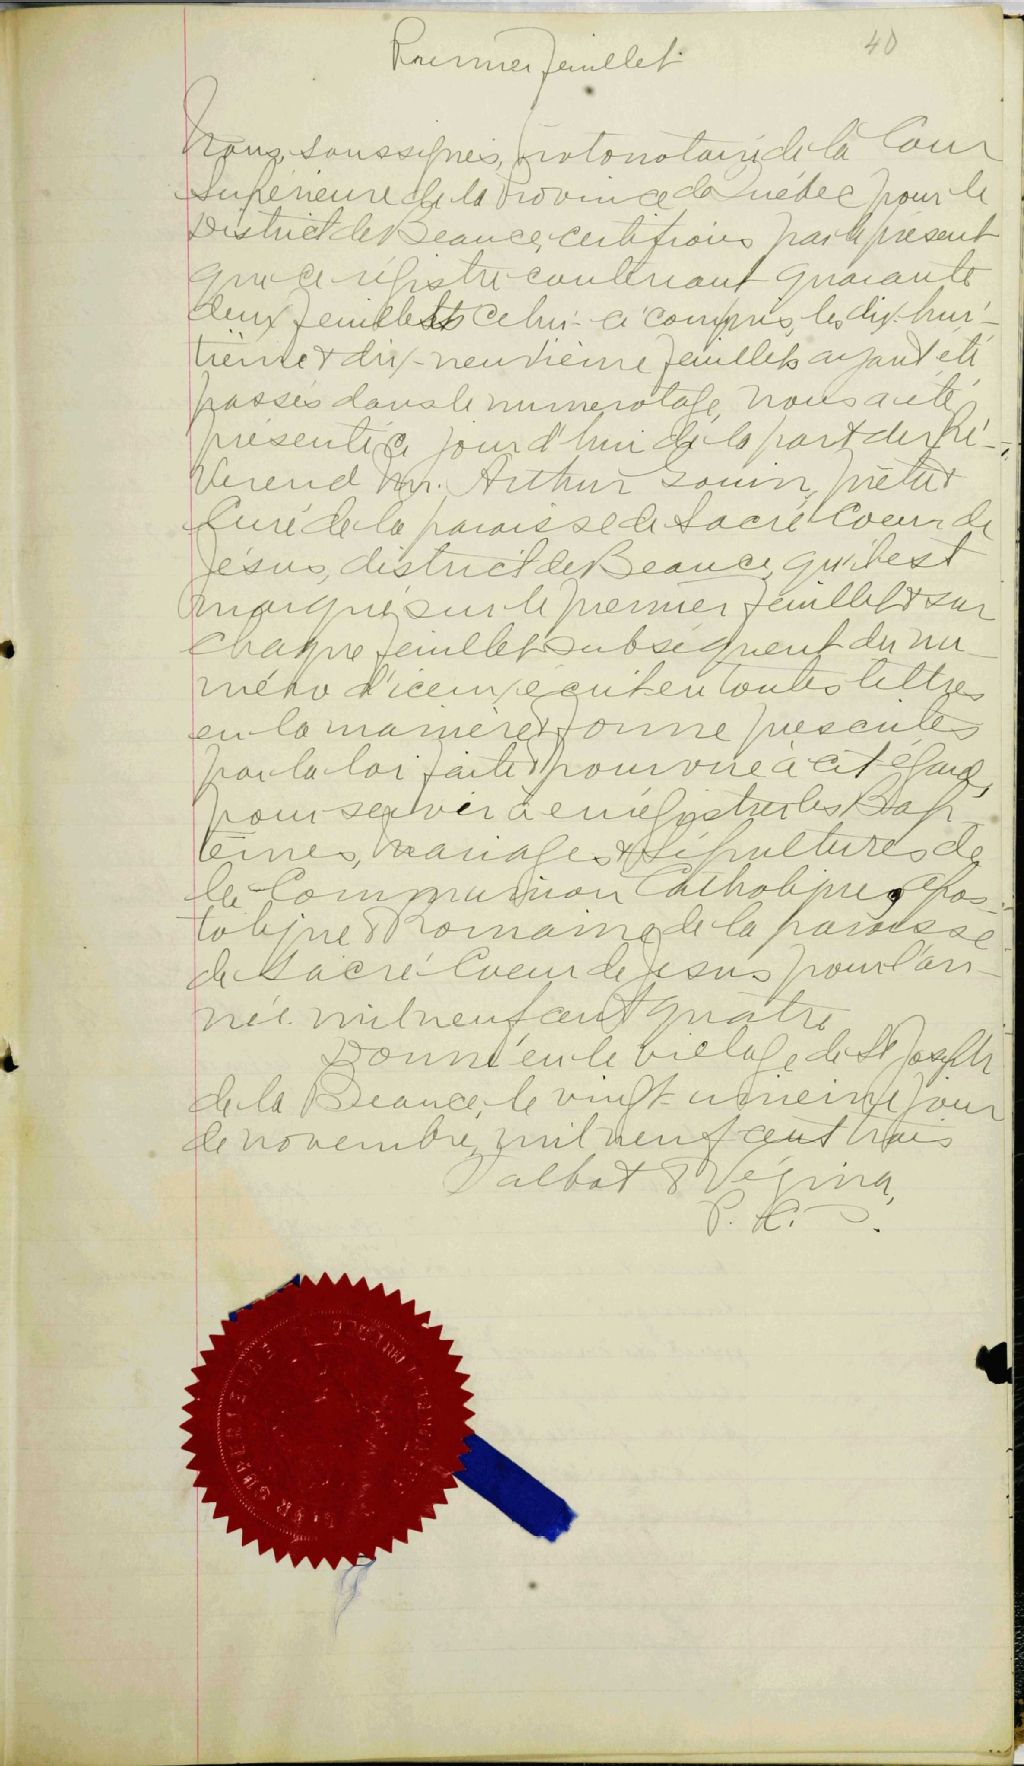 Premier feuillet
40
Nous, soussignés, protonotaire de la Cour
Supérieure de la Province de Québec pour le
District de Beauce, certifions par le présent
que ce régistre contenant quarante
deux feuillets celui-ci compris, les dix-hui-
tième & dix-neuvième feuillets ayant été
passés dans le numérotage, nous a été
présenté ce jourd'hui de la part du Ré-
vérend Mr. Arthur Gouin, prêtre
Curé de la paroisse de Sacré Coeur de
Jésus, district de Beauce, qu'il est
marqué sur le premier feuillet & sur
chaque feuillet subséquent du nu-
méro d'iceux, écrit en toutes lettres
en la manière & forme prescrites
par la loi faite & pourvue à cet égard,
pour servir à enrégistrer les Bap-
têmes, Mariages & Sépultures de
la Communion Catholique, Apos-
tolique & Romaine de la paroisse
de Sacré Coeur de Jésus pour l'an-
née mil neuf cent quatre
Donné en le village de St Joseph
de la Beauce, le vingt-unième jour
de novembre, mil neuf cent trois
Talbot & Vézina,
P. C. S.